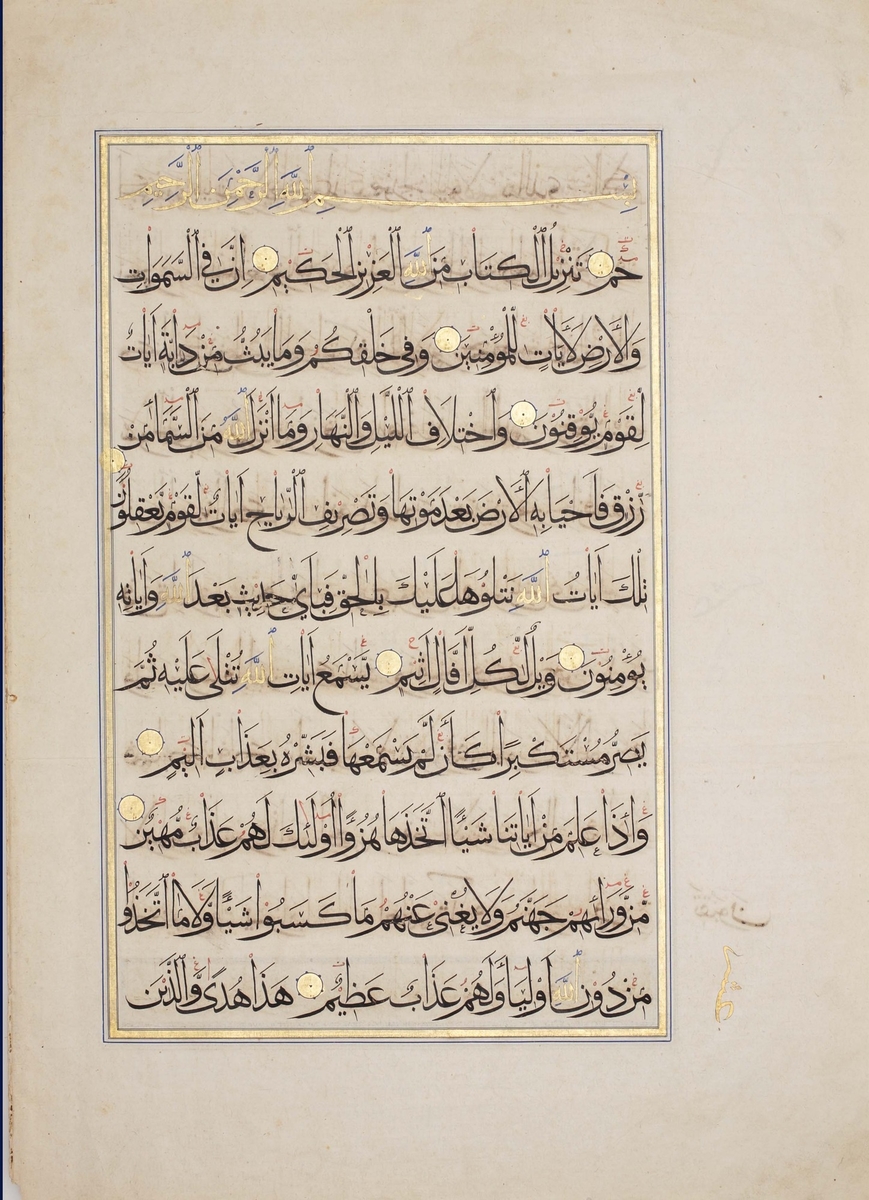 بِسْمِ اللَّهِ الرَّحْمٰنِ الرَّحِيمِ
حٰم تَنْزِيلُ الْكِتَابِ مِنَ اللَّهِ الْعَزِيزِ الْحَكِيمِ اِنَّ فِي السَّمَوَاتِ
وَالْاَرْضِ لَاٰيَاتٍ لِلْمُؤْمِنِينَ وَفِي خَلْقِكُمْ وَمَا يَبُثُّ مِنْ دَابَّةٍ اٰيَاتٌ
لِقَوْمٍ يُوقِنُونَ وَاخْتِلَافِ اللَّيْلِ وَالنَّهَارِ وَمَا اَنْزَلَ اللَّهُ مِنَ السَّمَاءِ مِنْ
رِزْقٍ فَاَحْيَا بِهِ الْاَرْضَ بَعْدَ مَوْتِهَا وَتَصْرِيفِ الرِّيَاحِ اٰيَاتٌ لِقَوْمٍ يَعْقِلُونَ
تِلْكَ اٰيَاتُ اللَّهِ نَتْلُوهَا عَلَيْكَ بِالْحَقِّ فَبِاَيِّ حَدِيثٍ بَعْدَ اللَّهِ وَاٰيَاتِهِ
يُؤْمِنُونَ وَيْلٌ لِكُلِّ اَفَّاكٍ اَثِيمٍ يَسْمَعُ اٰيَاتِ اللَّهِ تُتْلَى عَلَيْهِ ثُمَّ
يُصِرُّ مُسْتَكْبِرًا كَاَنْ لَمْ يَسْمَعْهَا فَبَشِّرْهُ بِعَذَابٍ اَلِيمٍ
وَاِذَا عَلِمَ مِنْ اٰيَاتِنَا شَيْئًا اتَّخَذَهَا هُزُوًا اُولٰئِكَ لَهُمْ عَذَابٌ مُهِينٌ
مِنْ وَرَائِهِمْ جَهَنَّمُ وَلَا يُغْنِي عَنْهُمْ مَا كَسَبُوا شَيْئًا وَلَا مَا اتَّخَذُوا
مِنْ دُونِ اللَّهِ اَوْلِيَاءَ وَلَهُمْ عَذَابٌ عَظِيمٌ هَذَا هُدًى وَالَّذِينَ
عشر